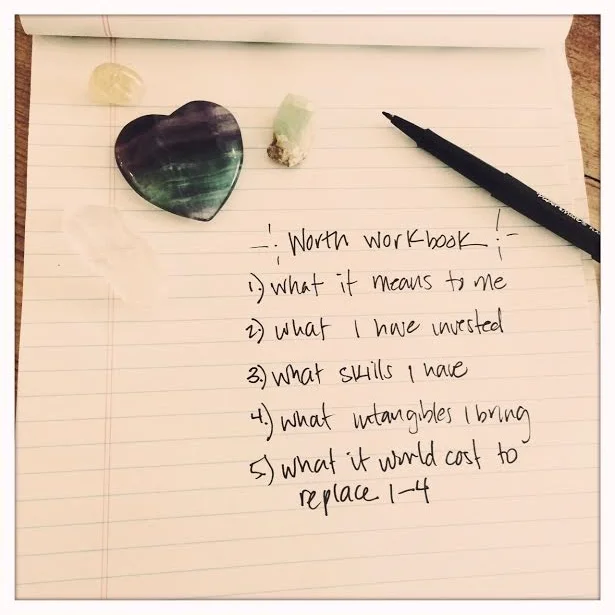 Worth workbook
1) what it means to me
2) what I have invested
3.) what skills I have
4.) what intangibles I bring
5.) what it would cost to
replace 1-4